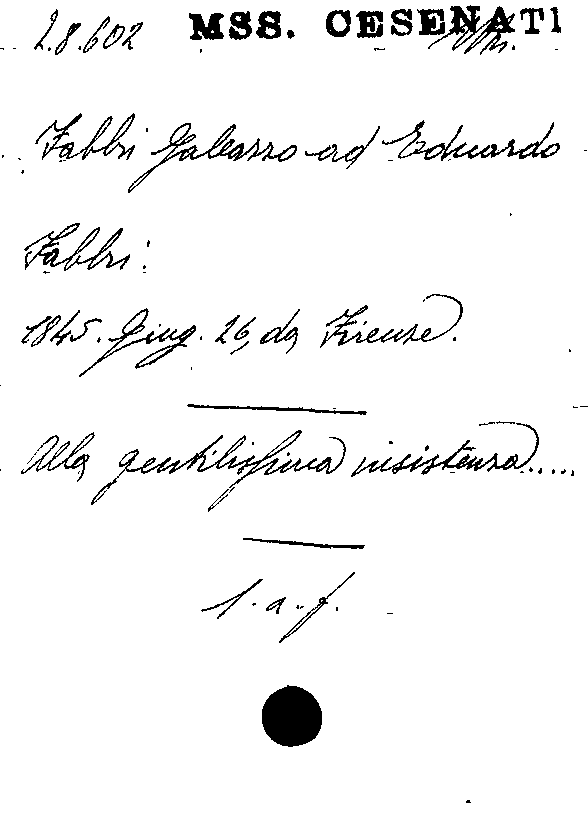 2.8.602 MSS. CESENATI
Fabbri Galeazzo ad Eduardo
Fabbri:
1845. Giug. 26, da Firenze.
Alla gentilissima insistenza.....
l. a. f.